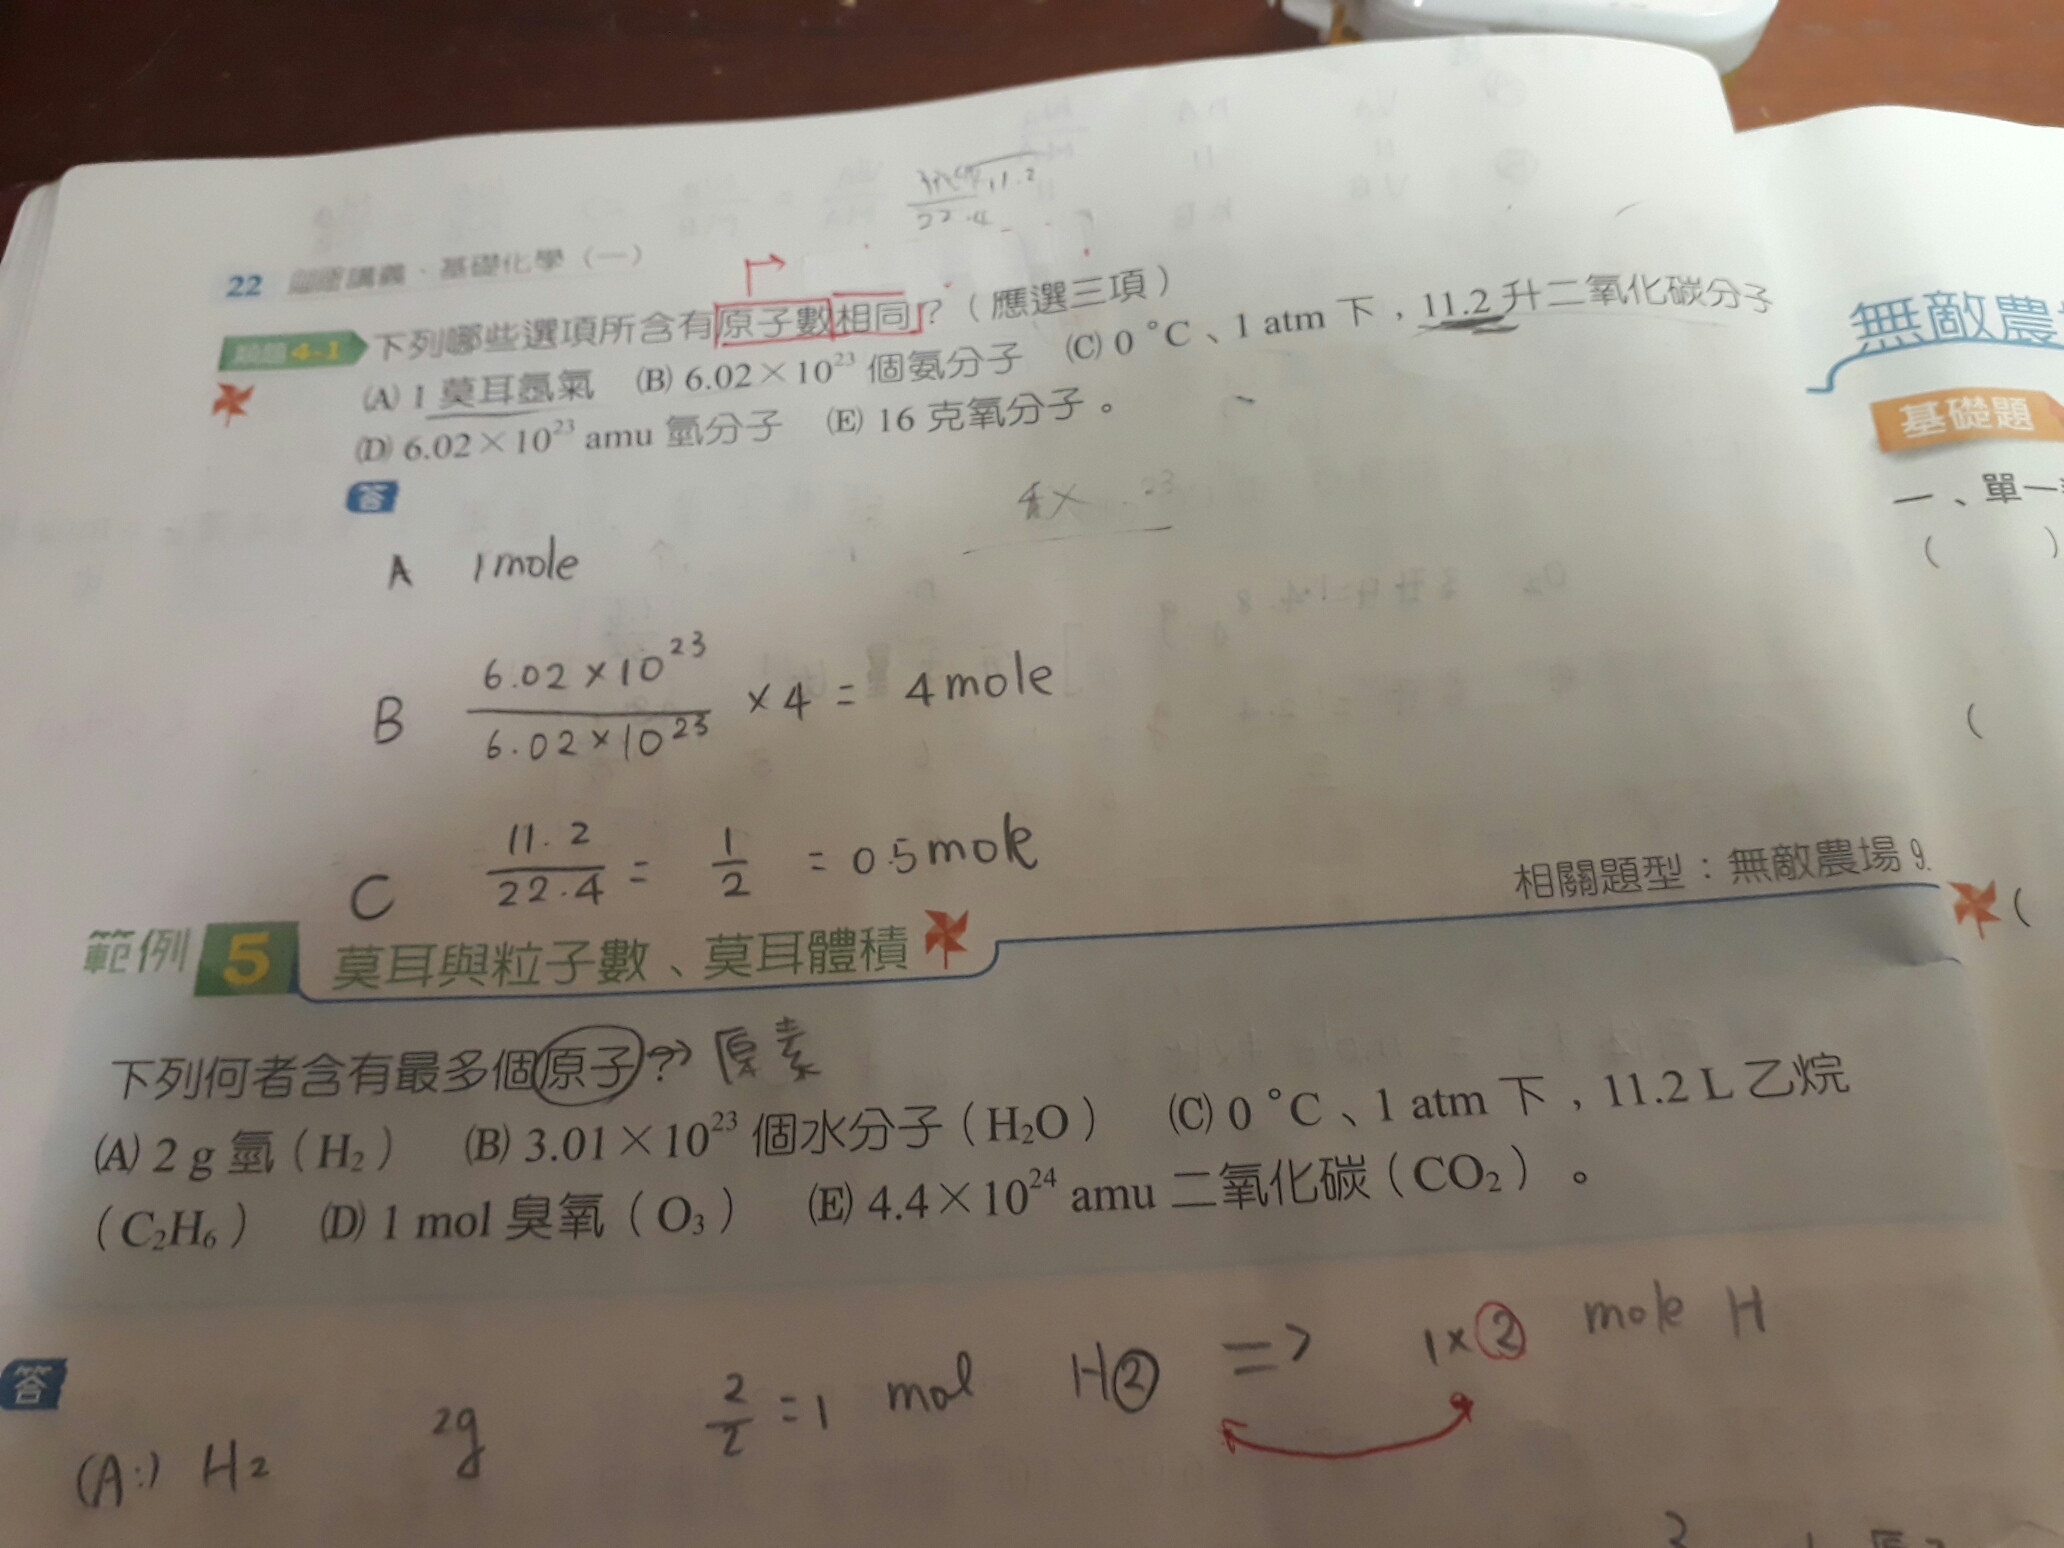 11.2
22.4
22 講義、基礎化學（一）
類題4-1 下列哪些選項所含有原子數相同？（應選三項）
(A) 1 莫耳氬氣 (B) 6.02×10²³ 個氨分子 (C) 0 °C、1 atm 下，11.2 升二氧化碳分子
(D) 6.02×10²³ amu 氫分子 (E) 16 克氧分子。
答
A 1 mole
B 6.02×10²³ / 6.02×10²³ ×4 = 4 mole
C 11.2 / 22.4 = 1/2 = 0.5 mole
相關題型：無敵農場 9.
範例 5 莫耳與粒子數、莫耳體積
下列何者含有最多個原子？ 原素
(A) 2 g 氫（H₂） (B) 3.01×10²³ 個水分子（H₂O） (C) 0 °C、1 atm 下，11.2 L 乙烷
（C₂H₆） (D) 1 mol 臭氧（O₃） (E) 4.4×10²⁴ amu 二氧化碳（CO₂）。
答
(A:) H₂ 2g 2/2 =1 mol H② => 1×② mole H
無敵農
基礎題
一、單一
( )
(
(